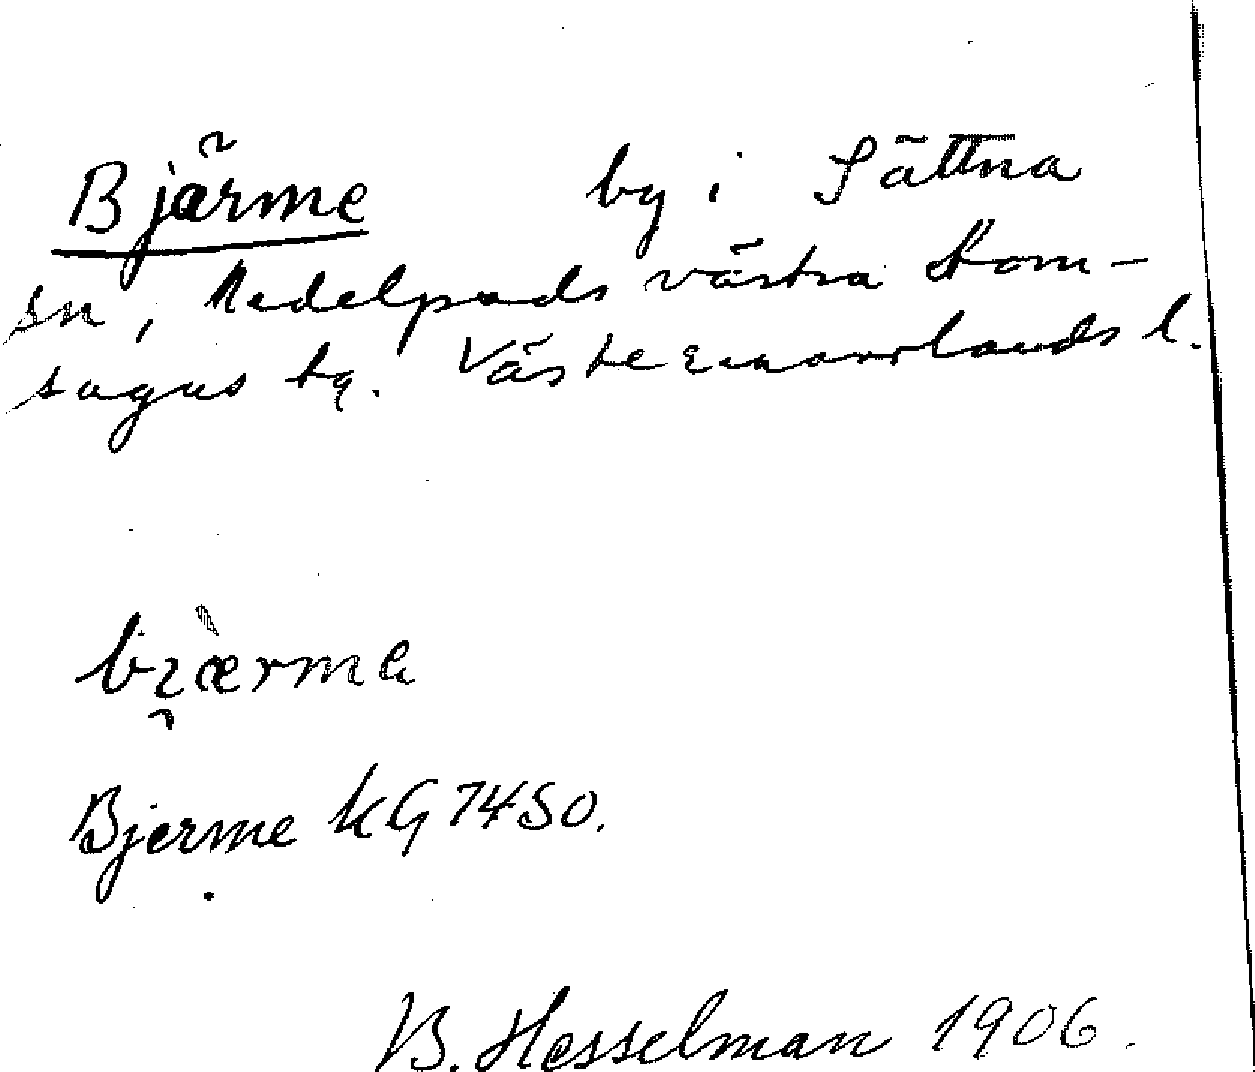 Bjärme by i Sättna
sn, Medelpads västra dom-
sagas tg. Västernorrlands l.
bi̯ærma
Bjerme KG 74SO.
B. Hesselman 1906.